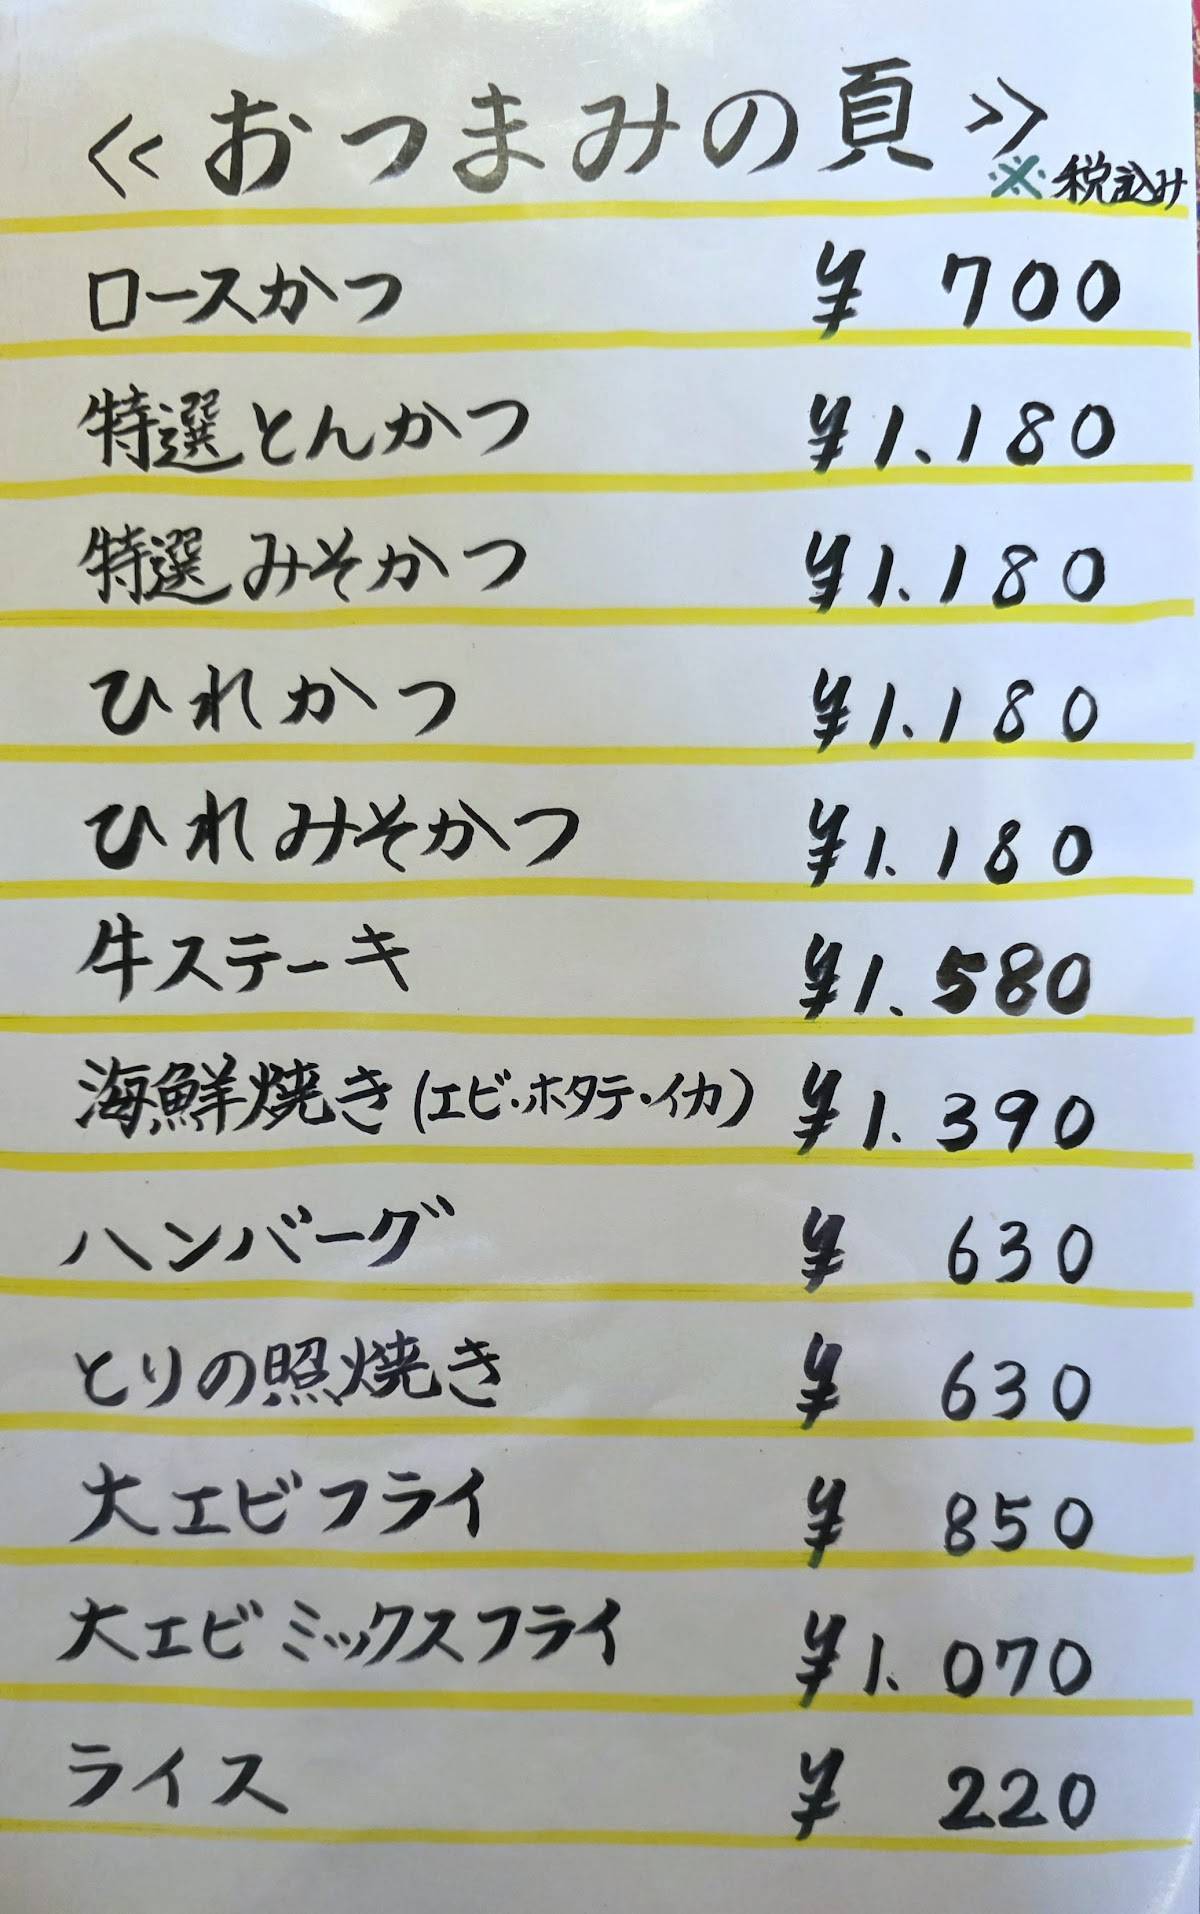 ≪おつまみの頁≫
※税込み
ロースかつ ¥ 700
特選とんかつ ¥1.180
特選みそかつ ¥1.180
ひれかつ ¥1.180
ひれみそかつ ¥1.180
牛ステーキ ¥1.580
海鮮焼き(エビ・ホタテ・イカ) ¥1.390
ハンバーグ ¥ 630
とりの照焼き ¥ 630
大エビフライ ¥ 850
大エビミックスフライ ¥1.070
ライス ¥ 220